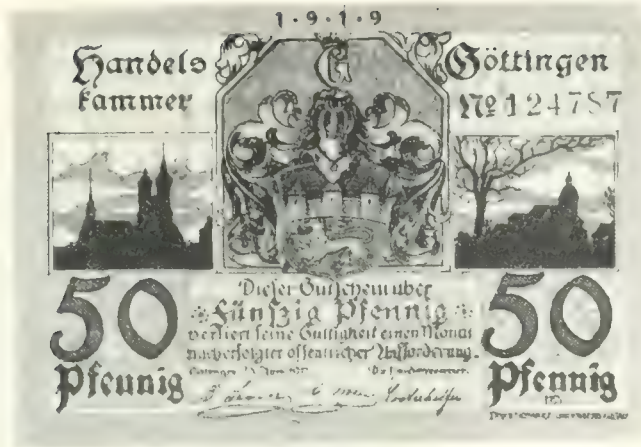 1·9·1·9
Handels
kammer
G
Göttingen
No 124787
Dieser Gutschein über
Fünfzig Pfennig
verliert seine Gültigkeit einen Monat
nach erfolgter öffentlicher Aufforderung.
50
Pfennig
50
Pfennig